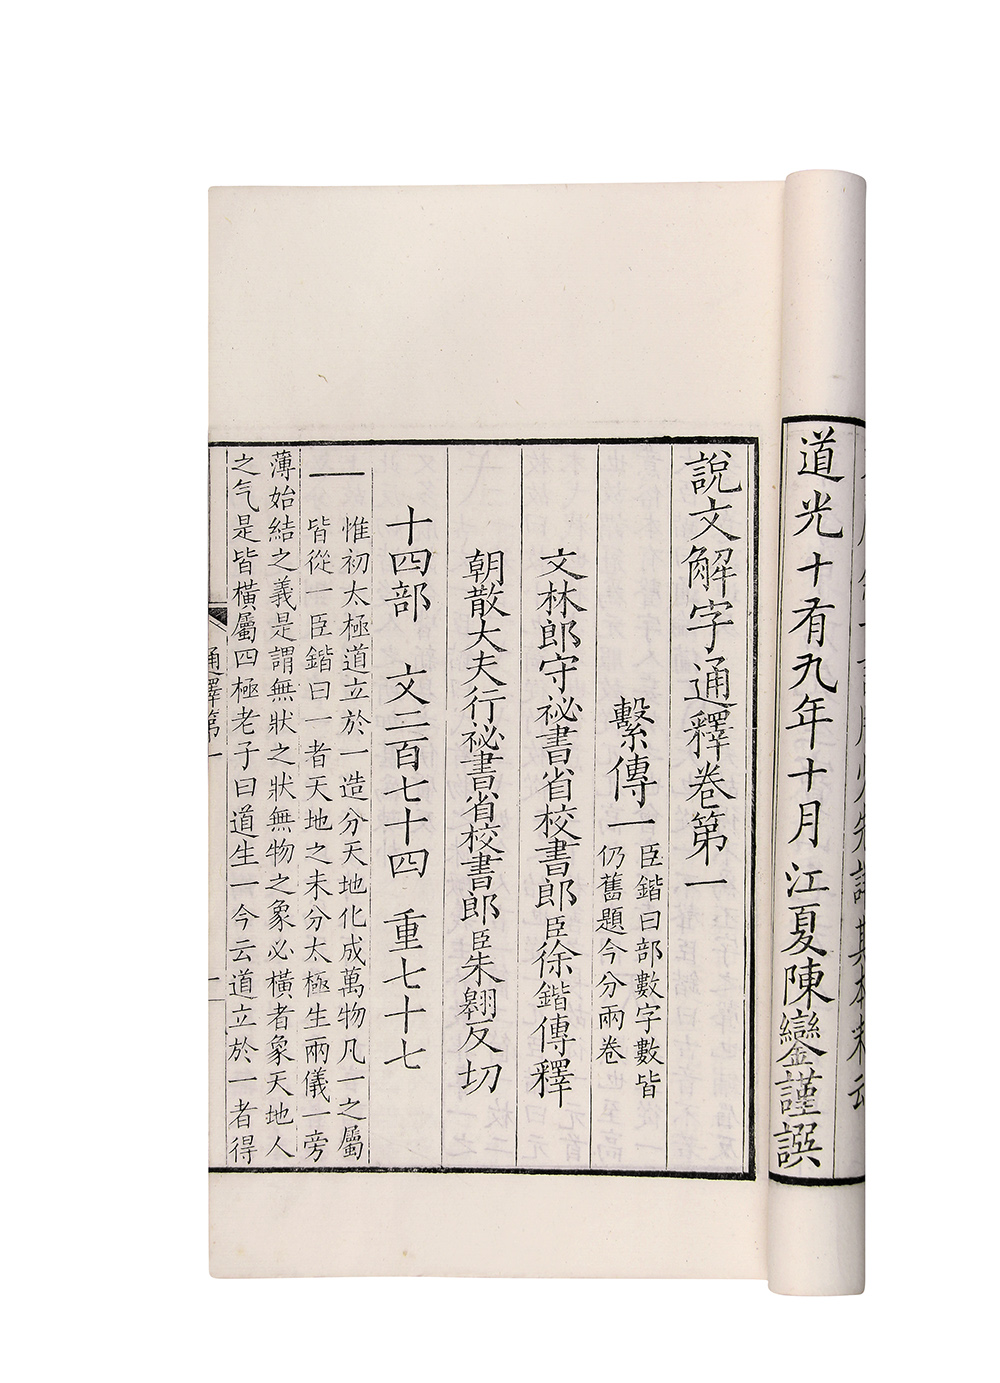 道光十有九年十月江夏陳鑾謹譔
說文解字通釋卷第一
繫傳一
臣鍇曰部數字數皆
仍舊題今分兩卷
文林郎守祕書省校書郎臣徐鍇傳釋
朝散大夫行祕書省校書郎臣朱翱反切
十四部 文二百七十四 重七十七
一
惟初太極道立於一造分天地化成萬物凡一之屬
皆從一臣鍇曰一者天地之未分太極生兩儀一旁
薄始結之義是謂無狀之狀無物之象必橫者象天地人
之气是皆橫屬四極老子曰道生一今云道立於一者得
通釋第一